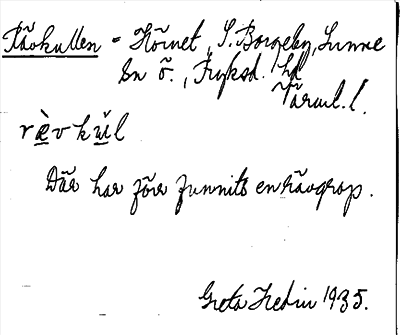 Rävkullen - Hörnet, S. Borgeby, Sunne
Sn Ö., Fryksd. hd
Värml. l.
rèvkul
Där har förr funnits en rävgrop.
Greta Hedin 1935.